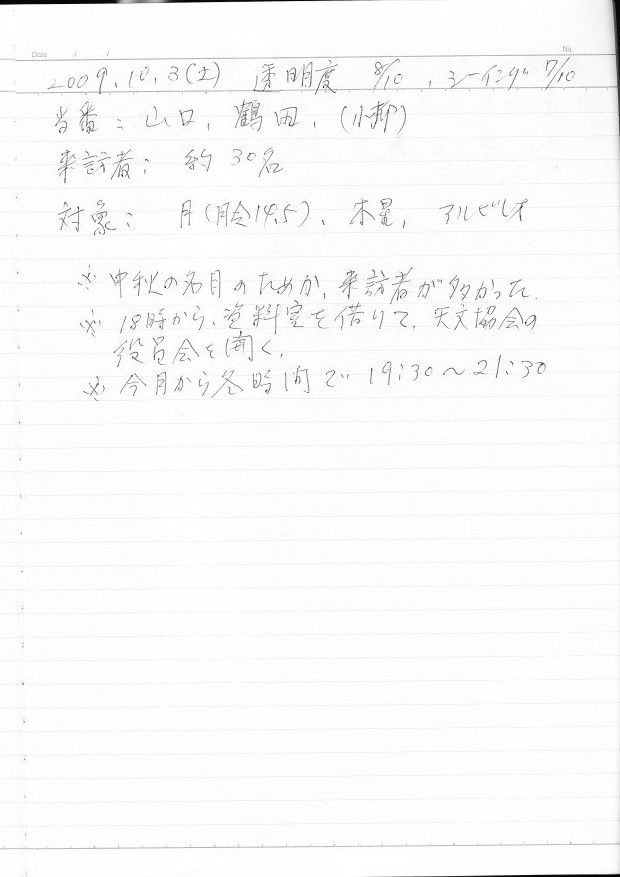 Date / /
No.
2009.10.3(土) 透明度 8/10 , シーイング 7/10
当番: 山口, 鶴田, (小柳)
来訪者: 約30名
対象: 月(月令14.5), 木星, アルビレオ
※ 中秋の名月のためか, 来訪者が多かった.
※ 18時から, 資料室を借りて, 天文協会の
役員会を開く.
※ 今月から冬時間で 19:30~21:30